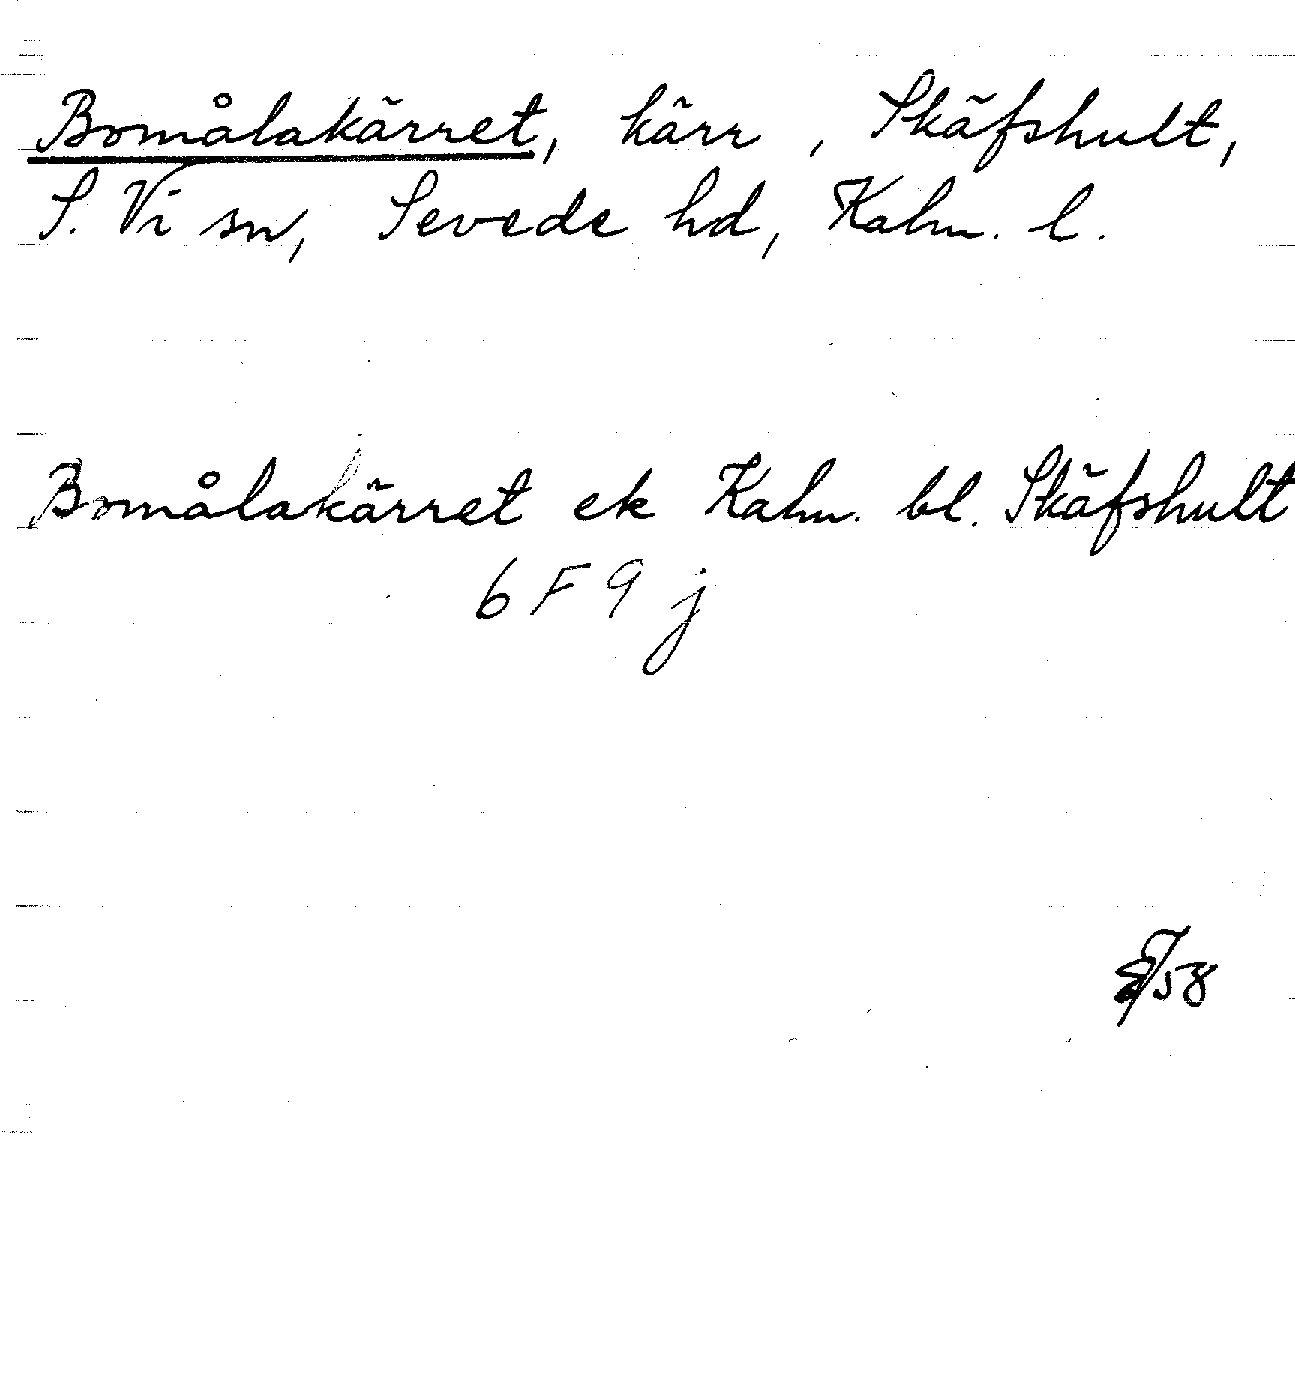 Bomålakärret, kärr , Skäfshult,
S. Vi sn, Sevede hd, Kalm. l.
Bomålakärret ek Kalm. bl. Skäfshult
6 F 9 j
/58